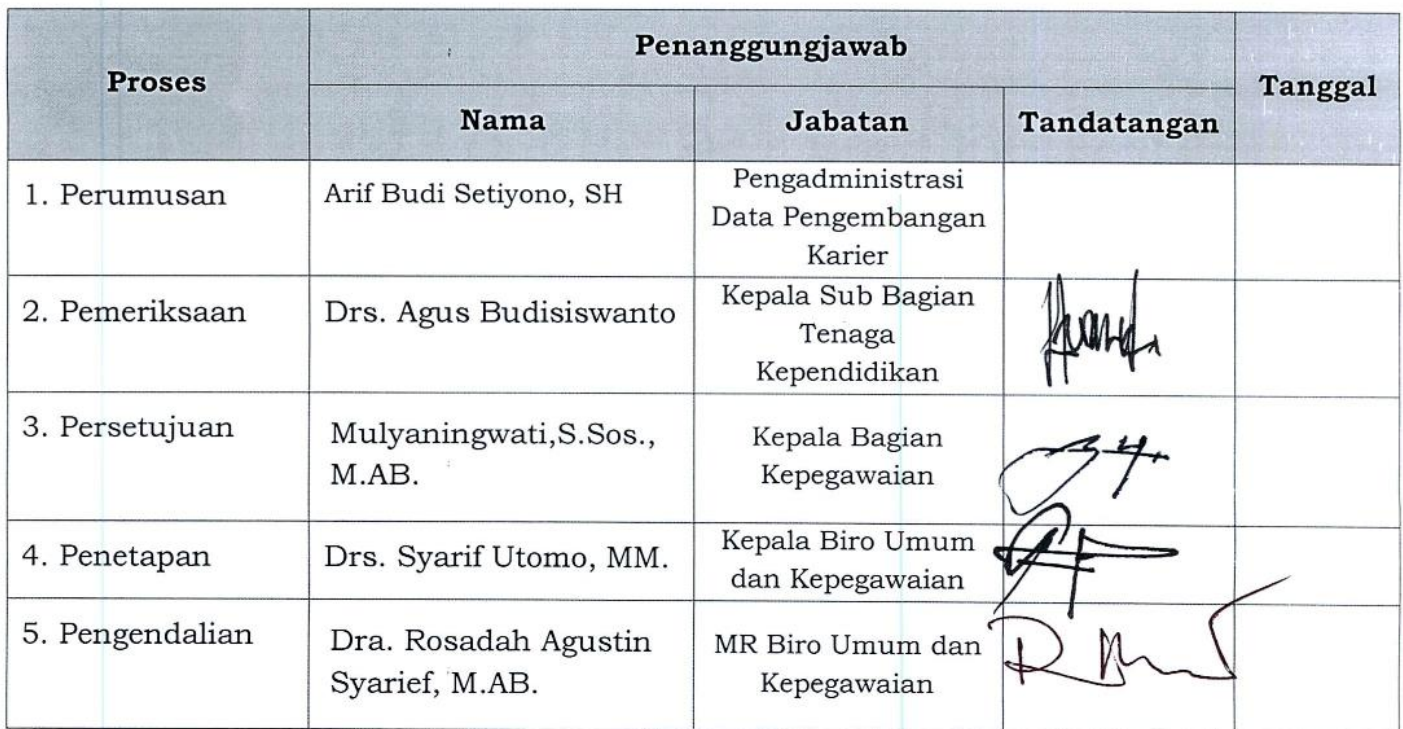 Proses
Penanggungjawab
Tanggal
Nama
Jabatan
Tandatangan
1. Perumusan
Arif Budi Setiyono, SH
Pengadministrasi
Data Pengembangan
Karier
2. Pemeriksaan
Drs. Agus Budisiswanto
Kepala Sub Bagian
Tenaga
Kependidikan
3. Persetujuan
Mulyaningwati,S.Sos.,
M.AB.
Kepala Bagian
Kepegawaian
4. Penetapan
Drs. Syarif Utomo, MM.
Kepala Biro Umum
dan Kepegawaian
5. Pengendalian
Dra. Rosadah Agustin
Syarief, M.AB.
MR Biro Umum dan
Kepegawaian